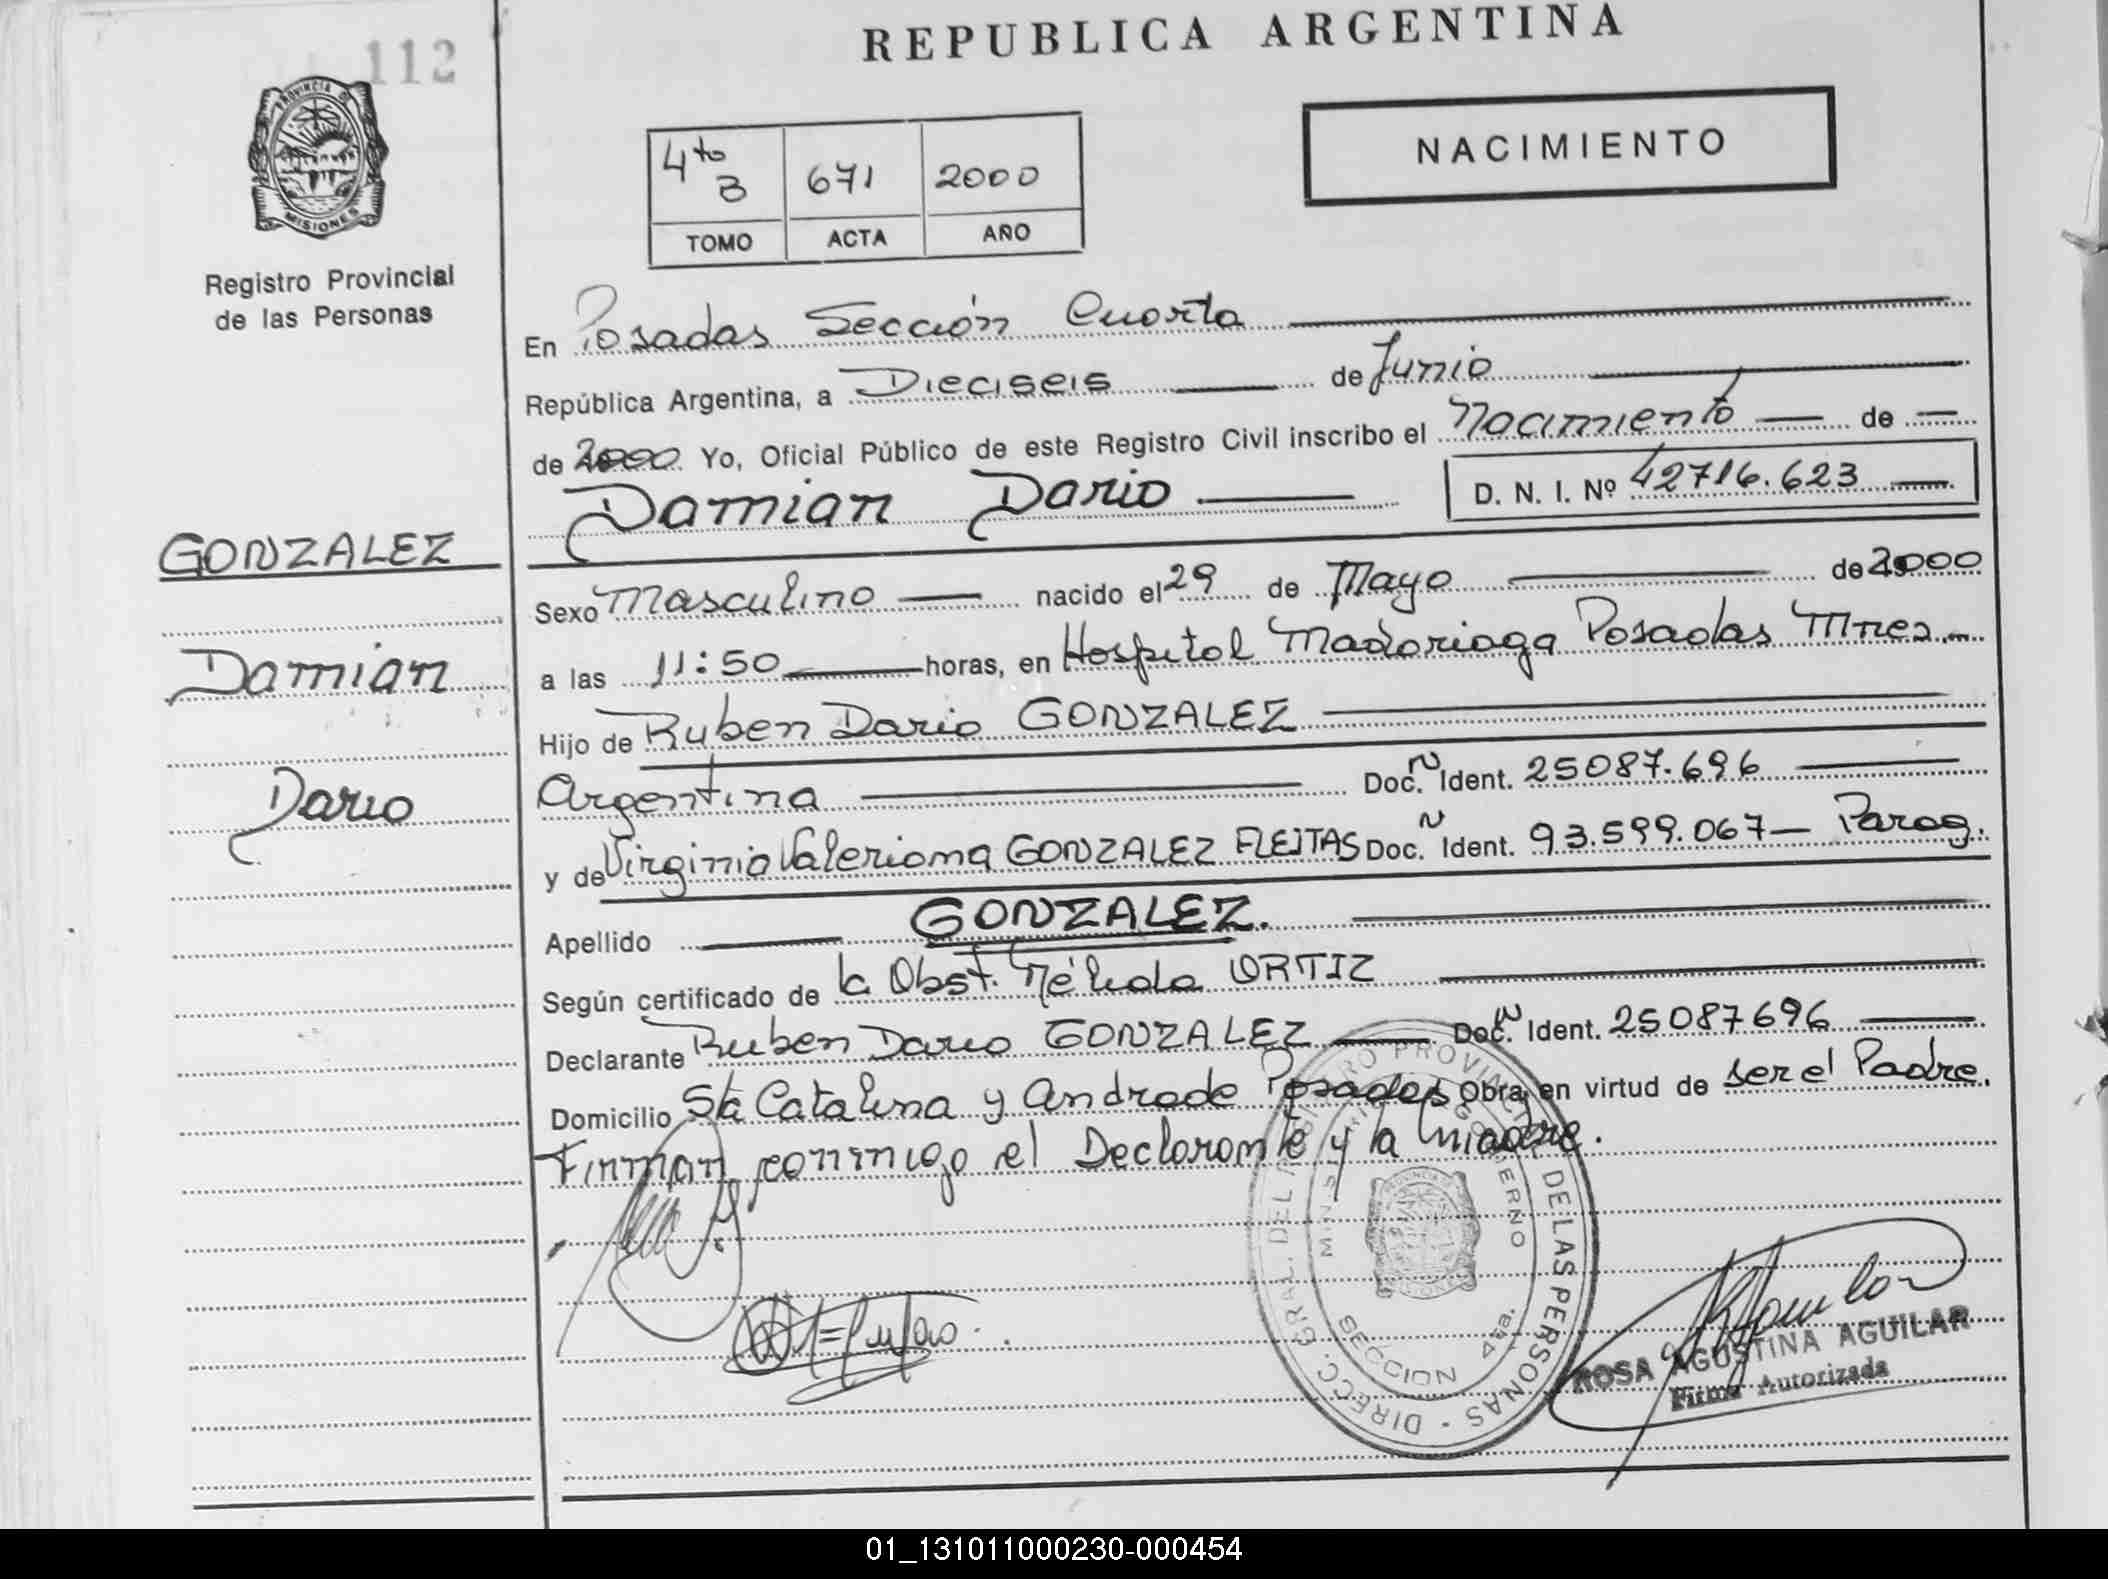 REPUBLICA ARGENTINA
112
PROVINCIA DE
MISIONES
Registro Provincial
de las Personas
NACIMIENTO
4to B 671 2000
TOMO ACTA AÑO
En Posadas Sección Cuarta
República Argentina, a Dieciseis de Junio
de 2000 Yo, Oficial Público de este Registro Civil inscribo el Nacimiento de
Damian Dario D. N. I. Nº 42716.623
GONZALEZ
Damian
Dario
Sexo Masculino nacido el 29 de Mayo de 2000
a las 11:50 horas, en Hospital Madariaga Posadas Mnes
Hijo de Ruben Dario GONZALEZ
Argentina Doc. N Ident. 25087.696
y de Virginia Valeriana GONZALEZ FLEITAS Doc. N Ident. 93.599.067 Parag.
Apellido GONZALEZ.
Según certificado de la Obst. Nélida ORTIZ
Declarante Ruben Dario GONZALEZ Doc. N Ident. 25087696
Domicilio Sta Catalina y Andrade Posadas Obra en virtud de ser el Padre.
Firman conmigo el Declarante y la madre.
DIRECC. GRAL. DEL REGISTRO PROVINCIAL DE LAS PERSONAS
SECCION 4ta.
ROSA AGUSTINA AGUILAR
Firma Autorizada
01_131011000230-000454